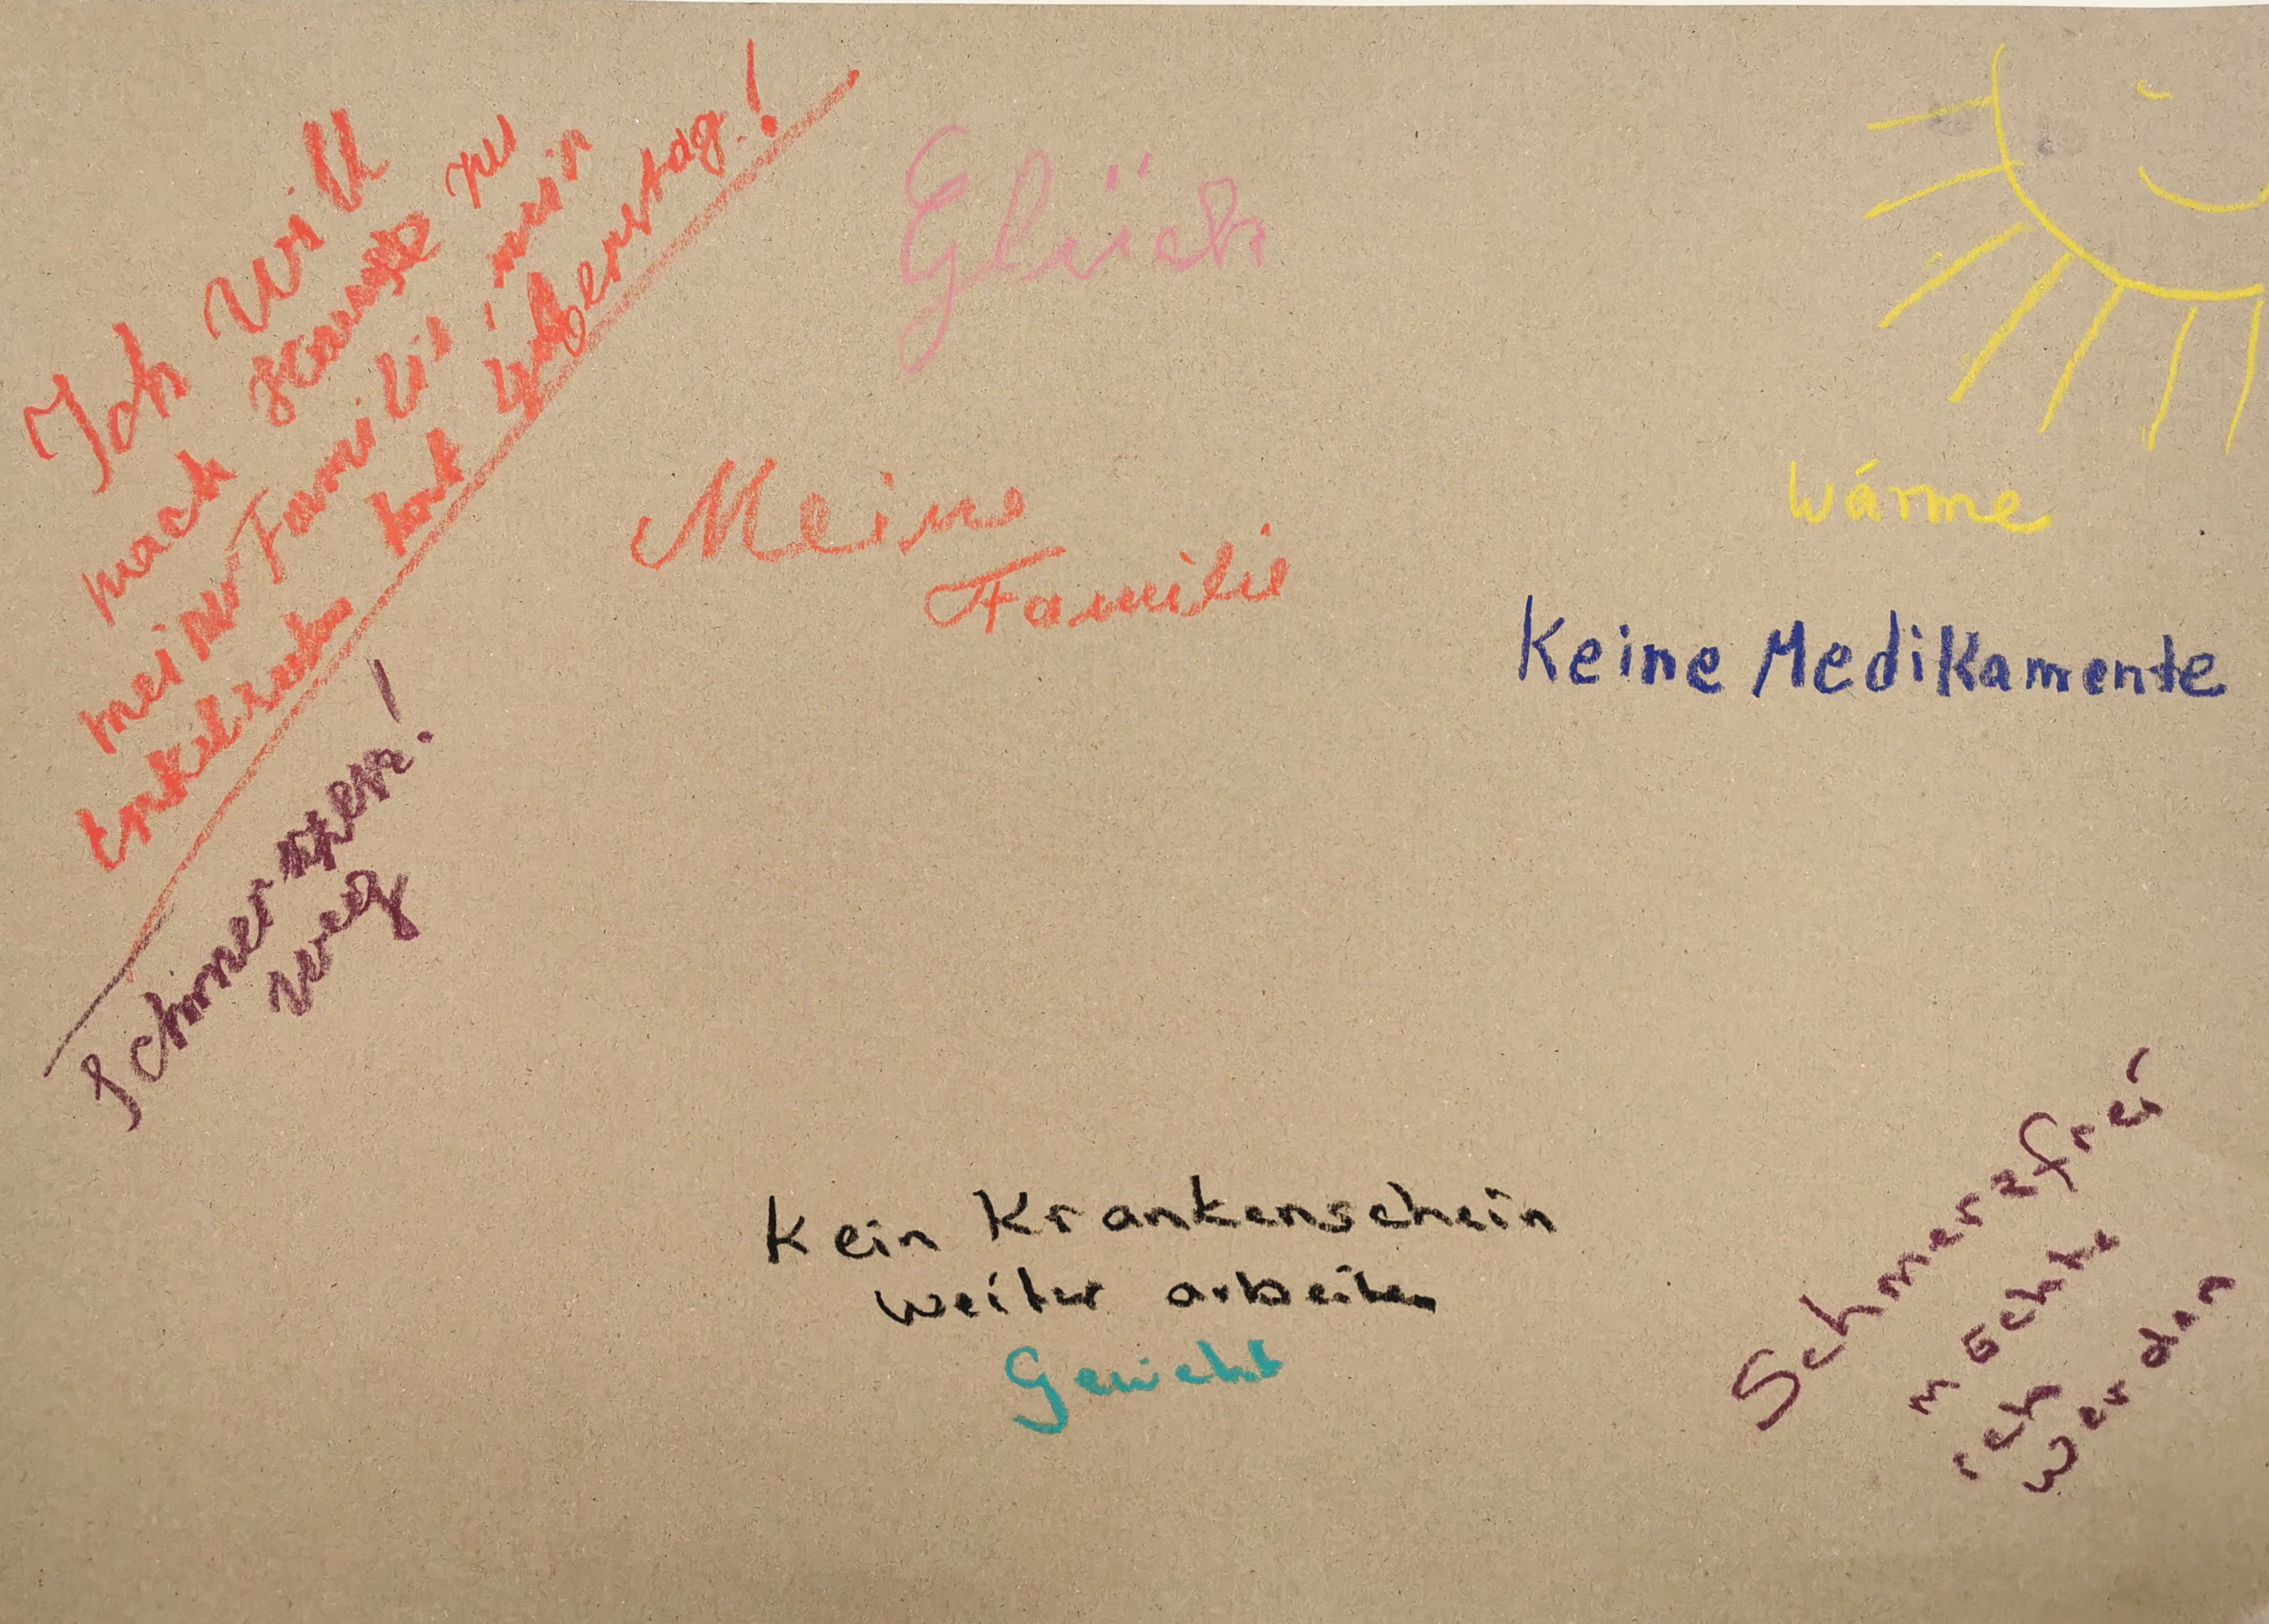 Ich will
nach Hause zu
meiner Familie mein
Enkelsohn hat Geberstag!
Schmerzen!
weg
Glück
Meine
Familie
Wärme
Keine Medikamente
Kein Krankenschein
weiter arbeiten
Schmerzfrei
möchte
ich
werden